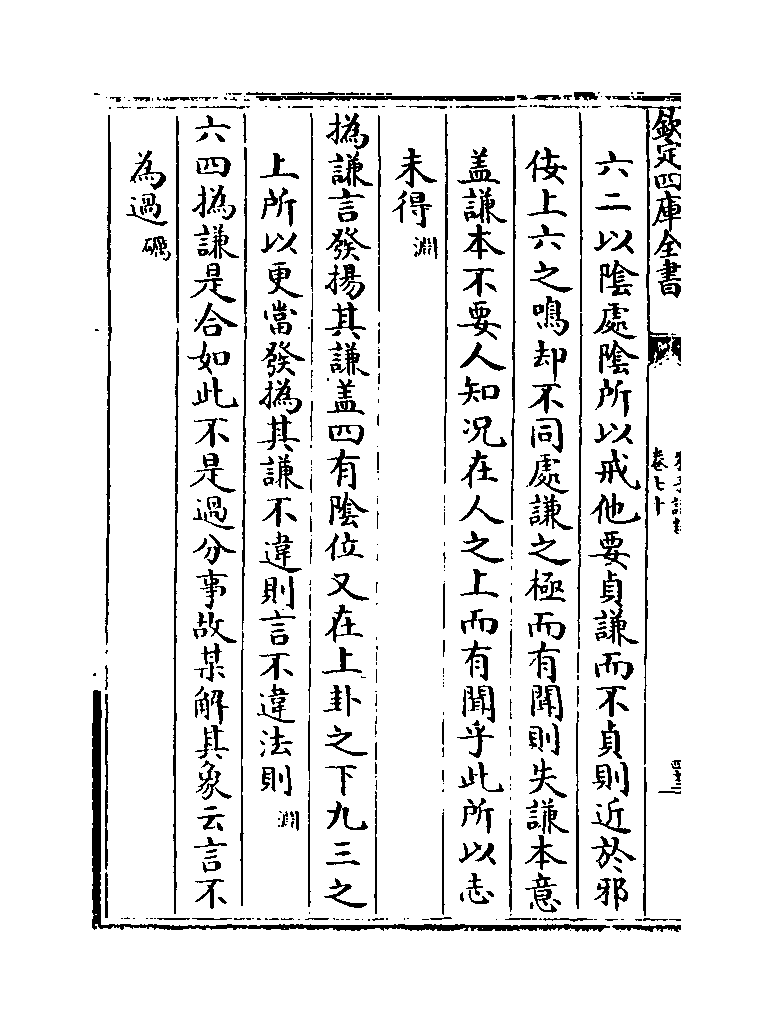 欽定四庫全書
卷七十
六二以陰處陰所以戒他要貞謙而不貞則近於邪
佞上六之鳴却不同處謙之極而有聞則失謙本意
盖謙本不要人知况在人之上而有聞乎此所以志
未得淵
撝謙言發揚其謙盖四有陰位又在上卦之下九三之
上所以更當發撝其謙不違則言不違法則淵
六四撝謙是合如此不是過分事故某解其象云言不
為過礪